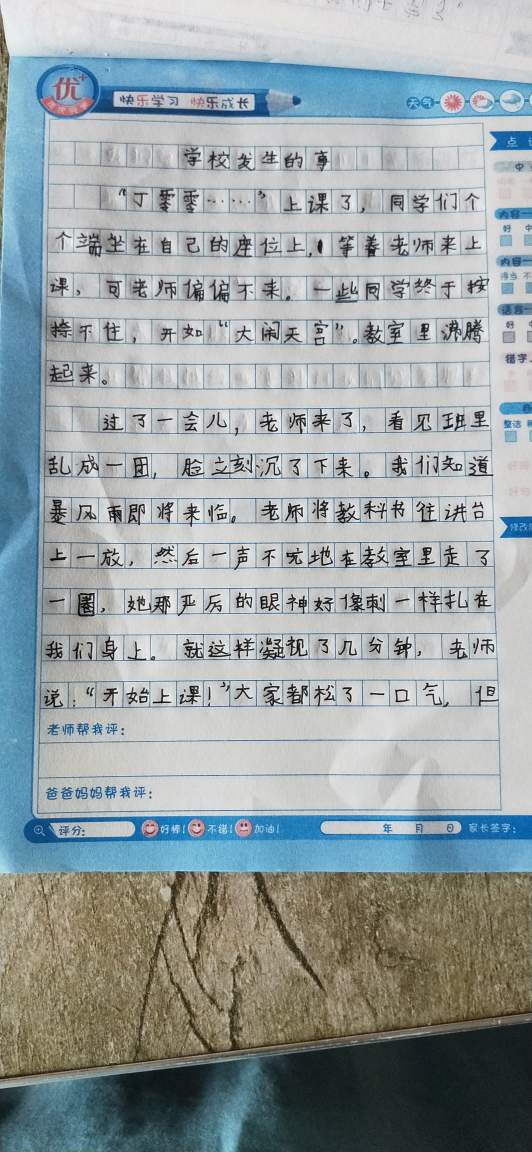 优+
快乐学习 快乐成长
天气
学校发生的事
“丁零零……”上课了，同学们个
个端坐在自己的座位上，等着老师来上
课，可老师偏偏不来。一些同学终于按
捺不住，开始“大闹天宫”。教室里沸腾
起来。
过了一会儿，老师来了，看见班里
乱成一团，脸立刻沉了下来。我们知道
暴风雨即将来临。老师将教科书往讲台
上一放，然后一声不吭地在教室里走了
一圈，她那严厉的眼神好像刺一样扎在
我们身上。就这样凝视了几分钟，老师
说：“开始上课！”大家都松了一口气，但
老师帮我评：
爸爸妈妈帮我评：
评分：
好棒！
不错！
加油！
年 月 日
家长签字：
点
中
内容一
好 中
内容一
得当 不
语言一
好
错字
整洁
修改